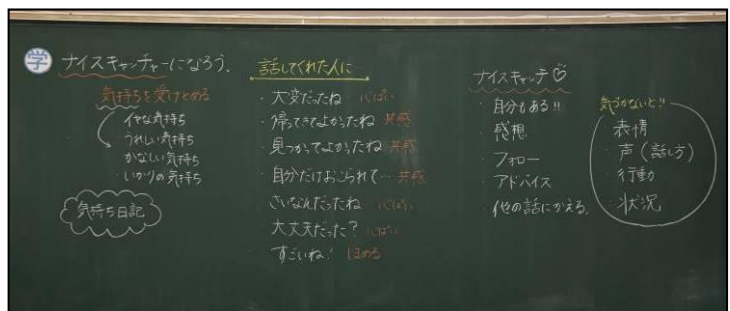 学 ナイスキャッチャーになろう。
気持ちを受けとめる
イヤな気持ち
うれしい気持ち
かなしい気持ち
・いかりの気持ち
気持ち日記
話してくれた人に…
・大変だったね 心ぱい
・帰ってきてよかったね 共感
・見つかってよかったね 共感
・自分だけおこられて… 共感
・さいなんだったね 心ぱい
・大丈夫だった? 心ぱい
・すごいね! ほめる
ナイスキャッチ♡
・自分もある!!
・感想
・フォロー
・アドバイス
他の話にかえる。
気づかないと!!
・表情
・声(話し方)
・行動
・状況